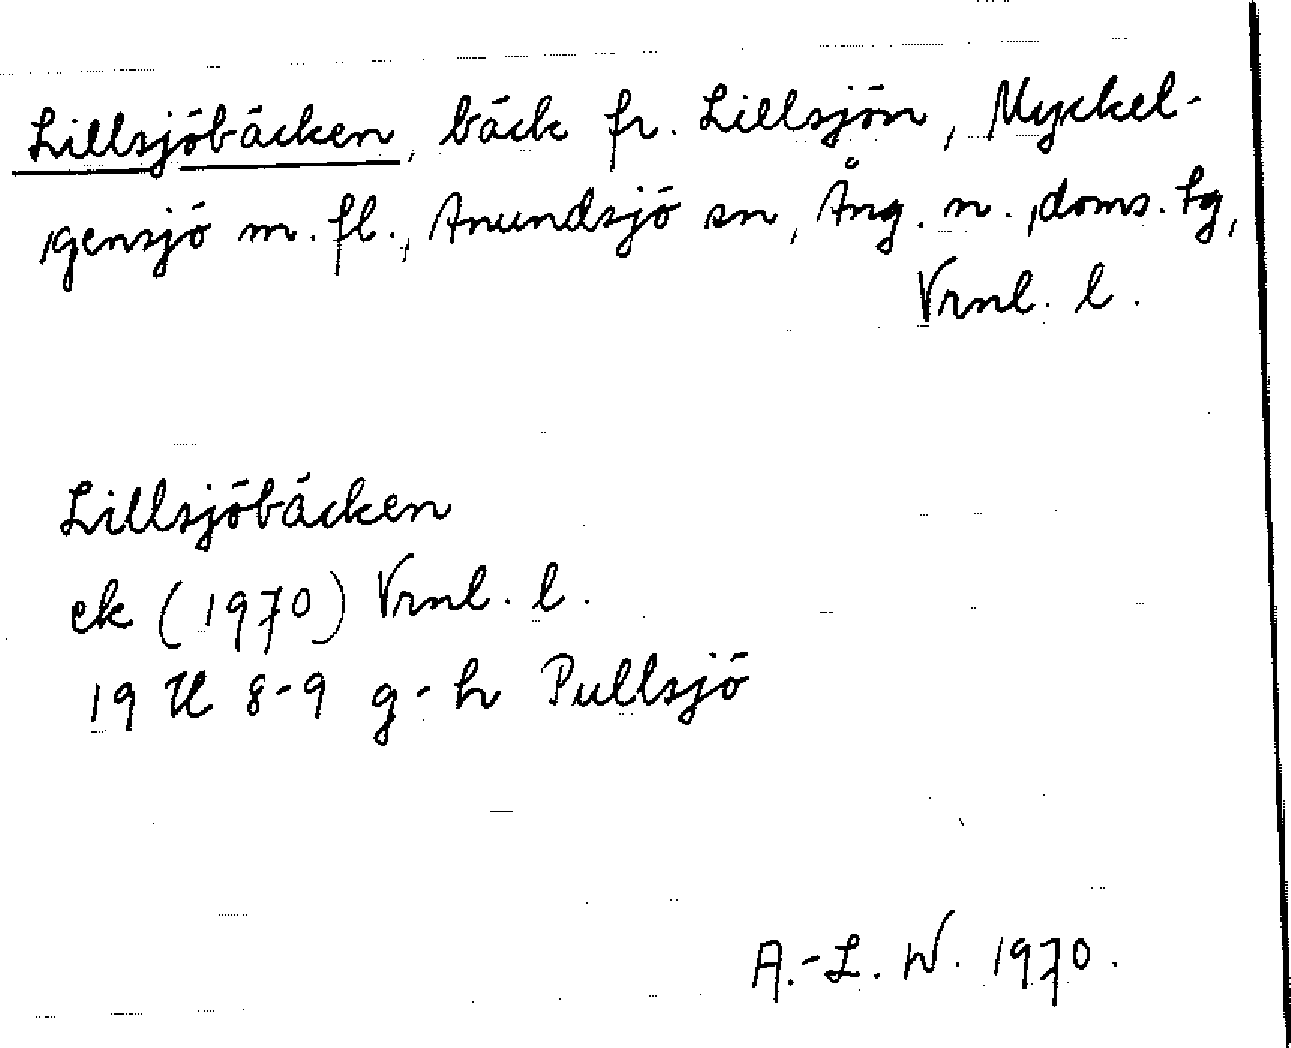 Lillsjöbäcken, bäck fr. Lillsjön, Myckel-
gensjö m. fl., Anundsjö sn, Ång. n. doms. tg,
Vrnl. l.
Lillsjöbäcken
ek (1970) Vrnl. l.
19 H 8-9 g-h Pullsjö
A.-L. W. 1970.